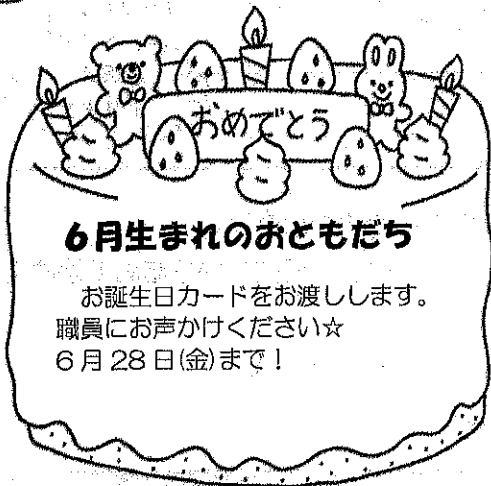 おめでとう
6月生まれのおともだち
お誕生日カードをお渡しします。
職員にお声かけください☆
6月28日(金)まで!